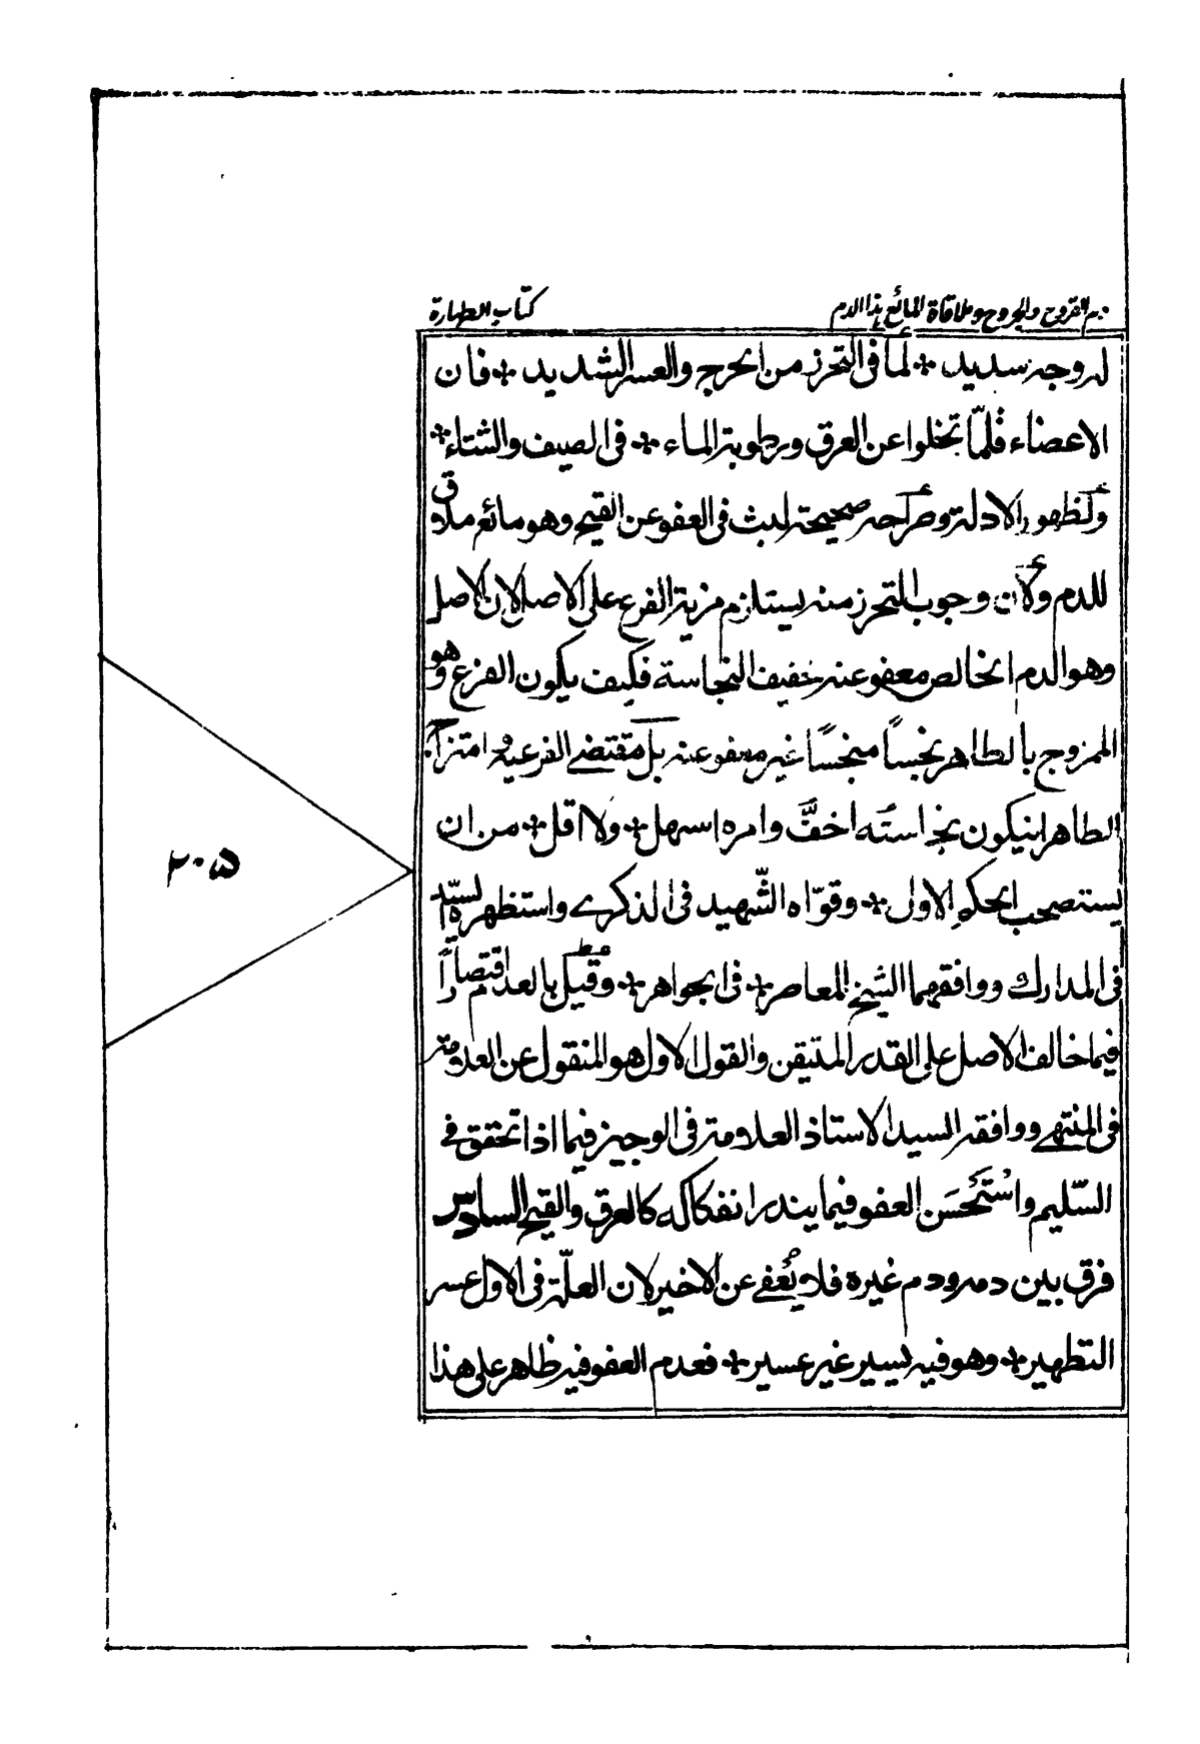 دم القروح والجروح وملاقاة المائع بهذا الدم
كتاب الطهارة
له وجه سديد * لما فى التحرز من الحرج والعسر الشديد * فان
الاعضاء قلمّا تخلوا عن العرق ورطوبة الماء * فى الصيف والشتاء *
ولظهور الادلة وصراحة صحيحة ليث فى العفو عن القيح وهو مائع ملاق
للدم ولأن وجوب التحرز منه يستلزم مزية الفرع على الاصل لان الاصل
وهو الدم الخالص معفو عنه خفيف النجاسة فكيف يكون الفرع وهو
الممزوج بالطاهر نجساً منجسًا غير معفو عنه بل مقتضے الفرعية و امتزاج
الطاهر ان يكون نجاسته اخفَّ وامره اسهل * ولا اقل * من ان
يستصحب الحكم الاول * وقوّاه الشّهيد فى الذكرے واستظهره السيّد
فى المدارك ووافقهما الشيخ المعاصر * فى الجواهر * وقيل بالعدم اقتصاراً
فيما خالف الاصل على القدر المتيقن والقول الاول هو المنقول عن العلامة
فى المنتهے ووافقه السيد الاستاذ العلامة فى الوجيز فيما اذا تحقق فے
السّليم واسْتَحْسَن العفو فيما يندر انفكاكه كالعرق والقيح السادس
فرق بين دمه ودم غيره فلا يُعْفے عن الاخير لان العلّة فى الاول عسر
التطهير * وهو فيه يسير غير عسير * فعدم العفو فيه ظاهر على هذا
٢٠٥